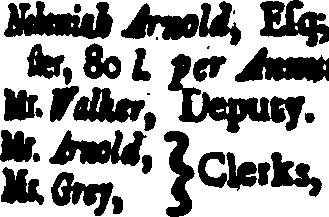 Nehemiah Arnold, Eſq;
ſter, 80 l. per Annu
Mr. Walker, Deputy.
Mr. Arnold,
Mr. Grey, } Clerks,